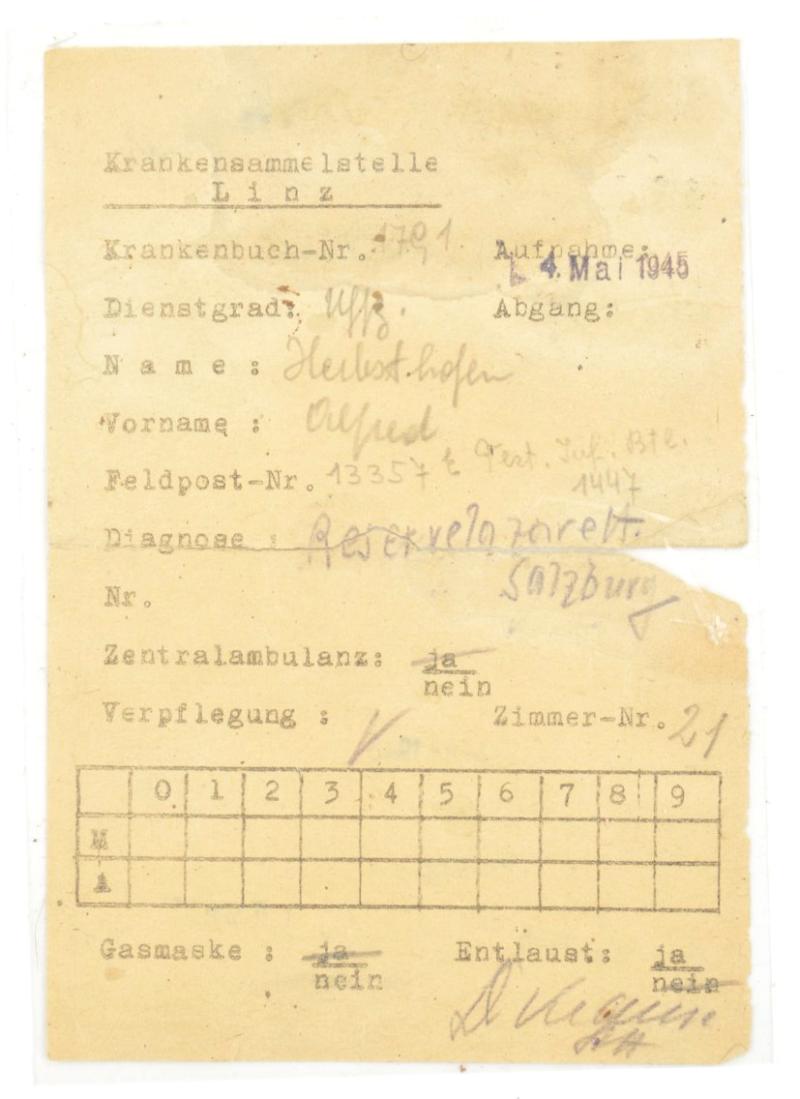 Krankensammelstelle
Linz
Krankenbuch-Nr. 1791 Aufnahme: 4. Mai 1945
Dienstgrad: Uffz. Abgang:
Name:
Vorname: Alfred
Feldpost-Nr. 13357 E Fest. Inf. Btl.
1447
Diagnose: Reservelazarett.
Salzburg
Nr.
Zentralambulanz: ja
nein
Verpflegung: Zimmer-Nr. 21
0 1 2 3 4 5 6 7 8 9
M
A
Gasmaske: ja Entlaust: ja
nein nein